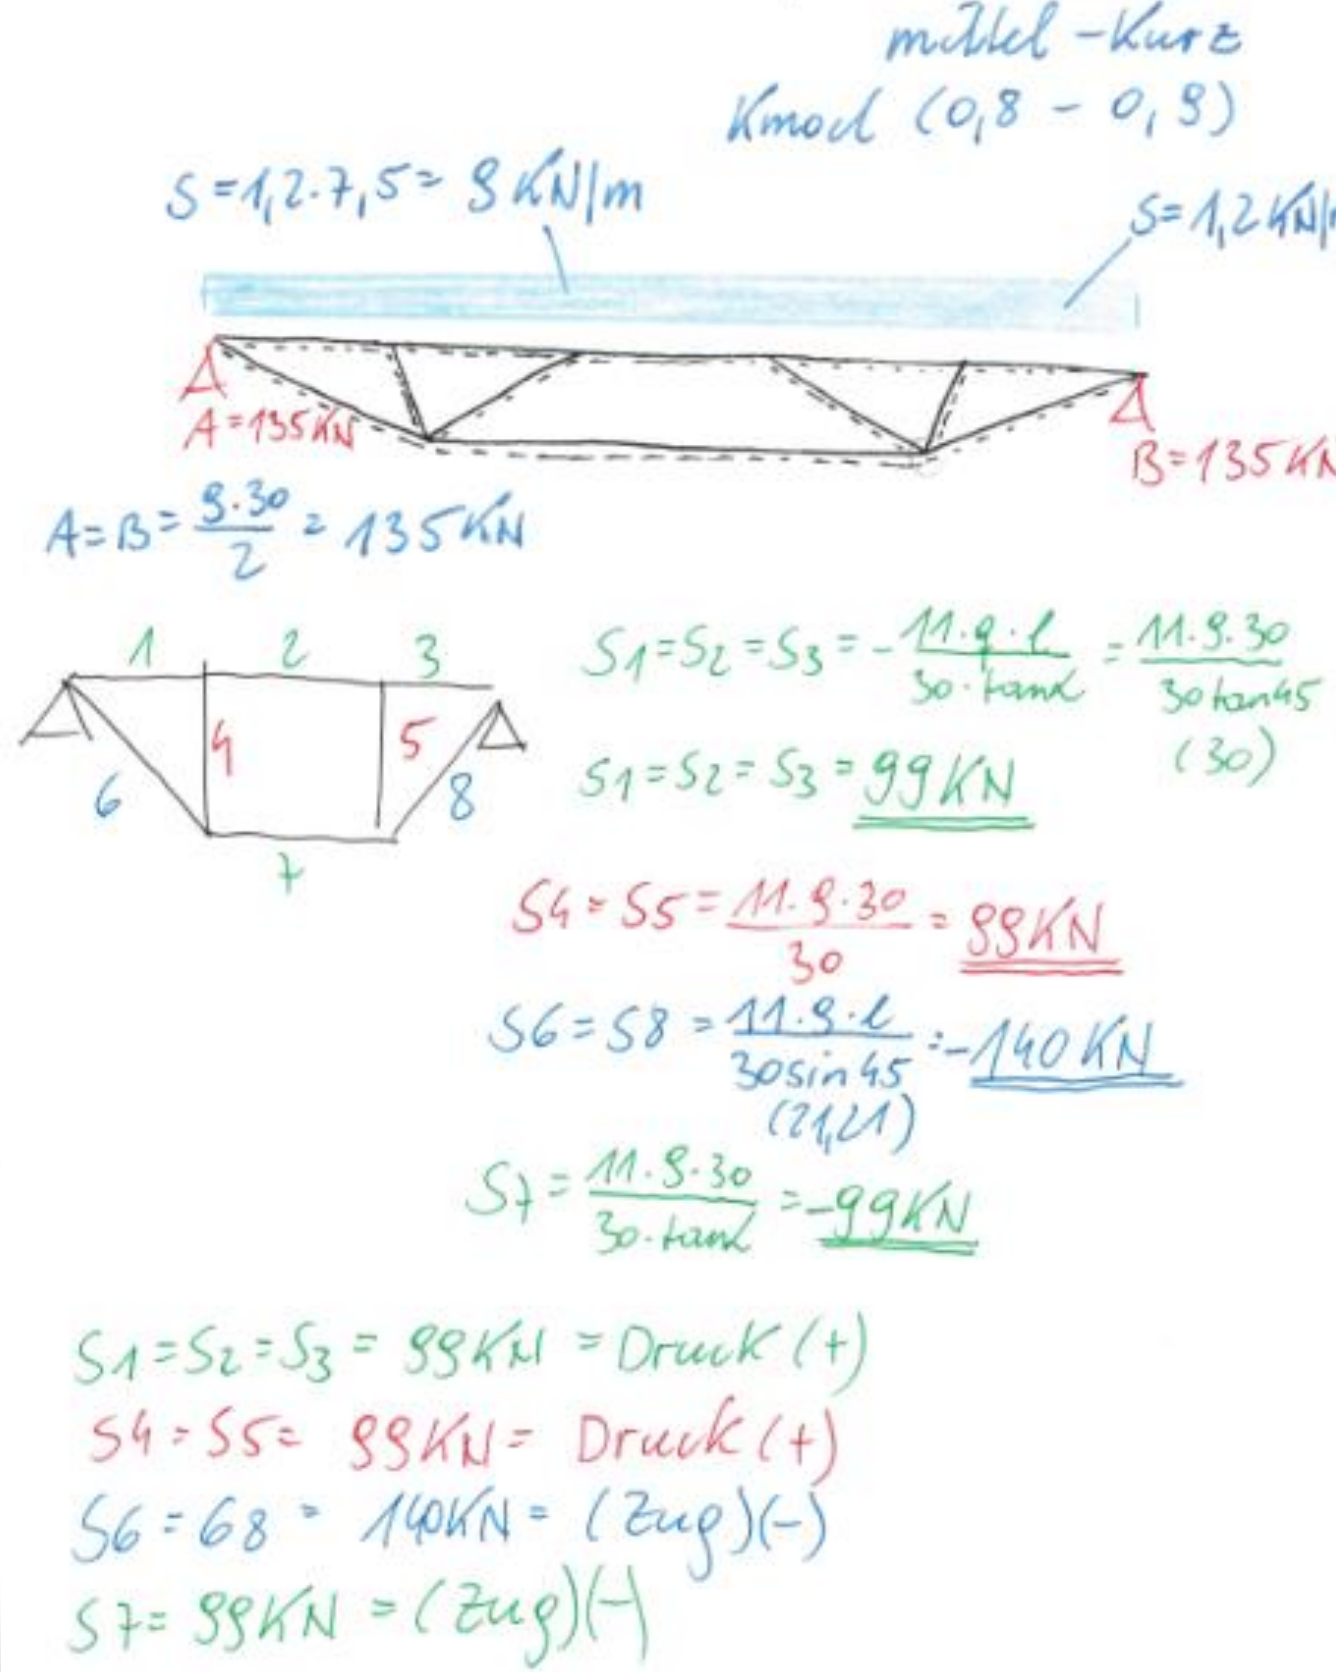 mittel - Kurz
Kmod (0,8 - 0,9)
S=1,2·7,5= 9 KN/m
S=1,2 KN/
A=135KN
B=135KN
A=B= 9·30/2 = 135KN
1 2 3
4 5
6 8
7
S1=S2=S3=- 11·q·l/30·tanα = 11·9·30/30 tan45
(30)
S1=S2=S3=99KN
S4=S5= 11·9·30/30 = 99KN
S6=S8= 11·9·l/30sin45 =-140KN
(21,21)
S7= 11·9·30/30·tanα =-99KN
S1=S2=S3= 99KN =Druck (+)
S4=S5= 99KN= Druck (+)
S6=68= 140KN= (Zug)(-)
S7=99KN =(Zug)(-)